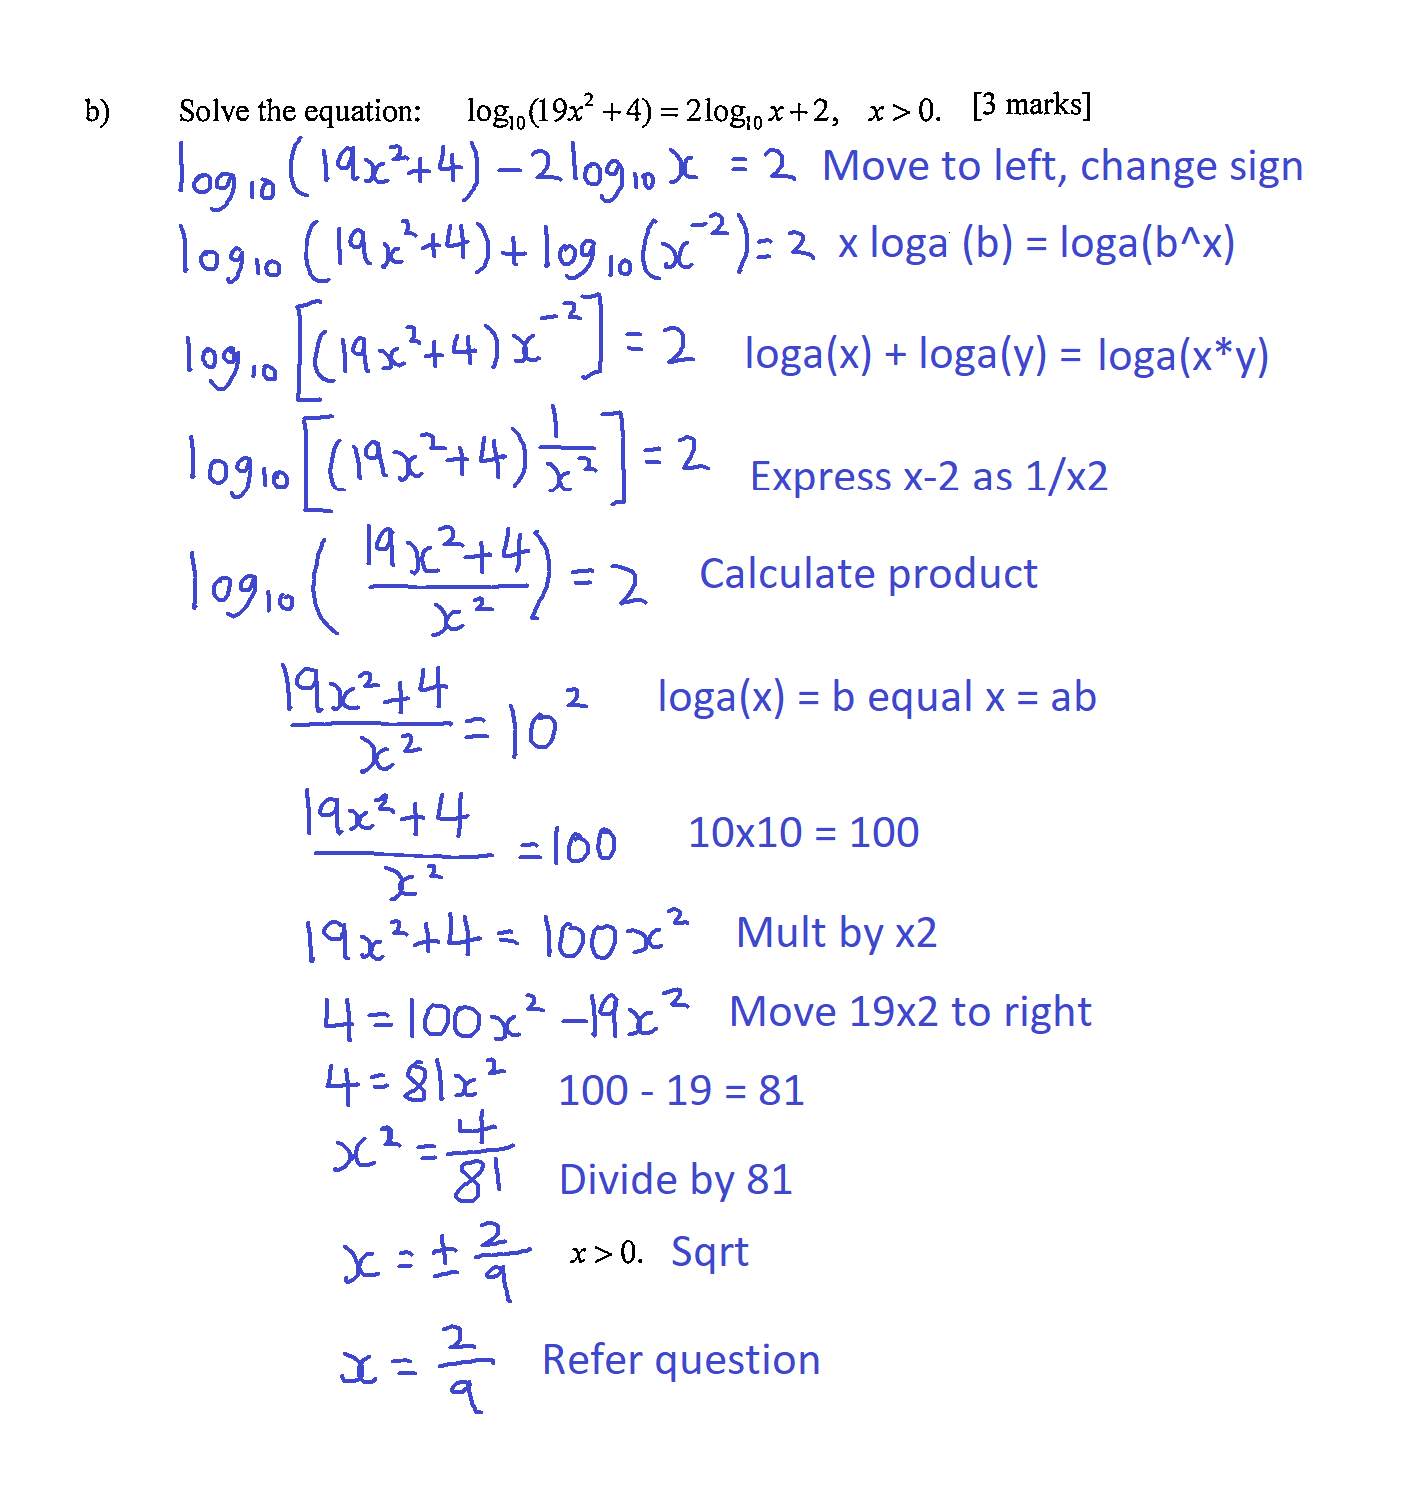 b) Solve the equation: log₁₀(19x² + 4) = 2log₁₀ x + 2, x > 0. [3 marks]
log₁₀(19x²+4) – 2log₁₀ x = 2 Move to left, change sign
log₁₀(19x²+4) + log₁₀(x⁻²) = 2 x loga (b) = loga(b^x)
log₁₀[(19x²+4)x⁻²] = 2 loga(x) + loga(y) = loga(x*y)
log₁₀[(19x²+4) 1/x²] = 2 Express x-2 as 1/x2
log₁₀((19x²+4)/x²) = 2 Calculate product
(19x²+4)/x² = 10² loga(x) = b equal x = ab
(19x²+4)/x² = 100 10x10 = 100
19x²+4 = 100x² Mult by x2
4 = 100x² – 19x² Move 19x2 to right
4 = 81x² 100 - 19 = 81
x² = 4/81 Divide by 81
x = ± 2/9 x > 0. Sqrt
x = 2/9 Refer question